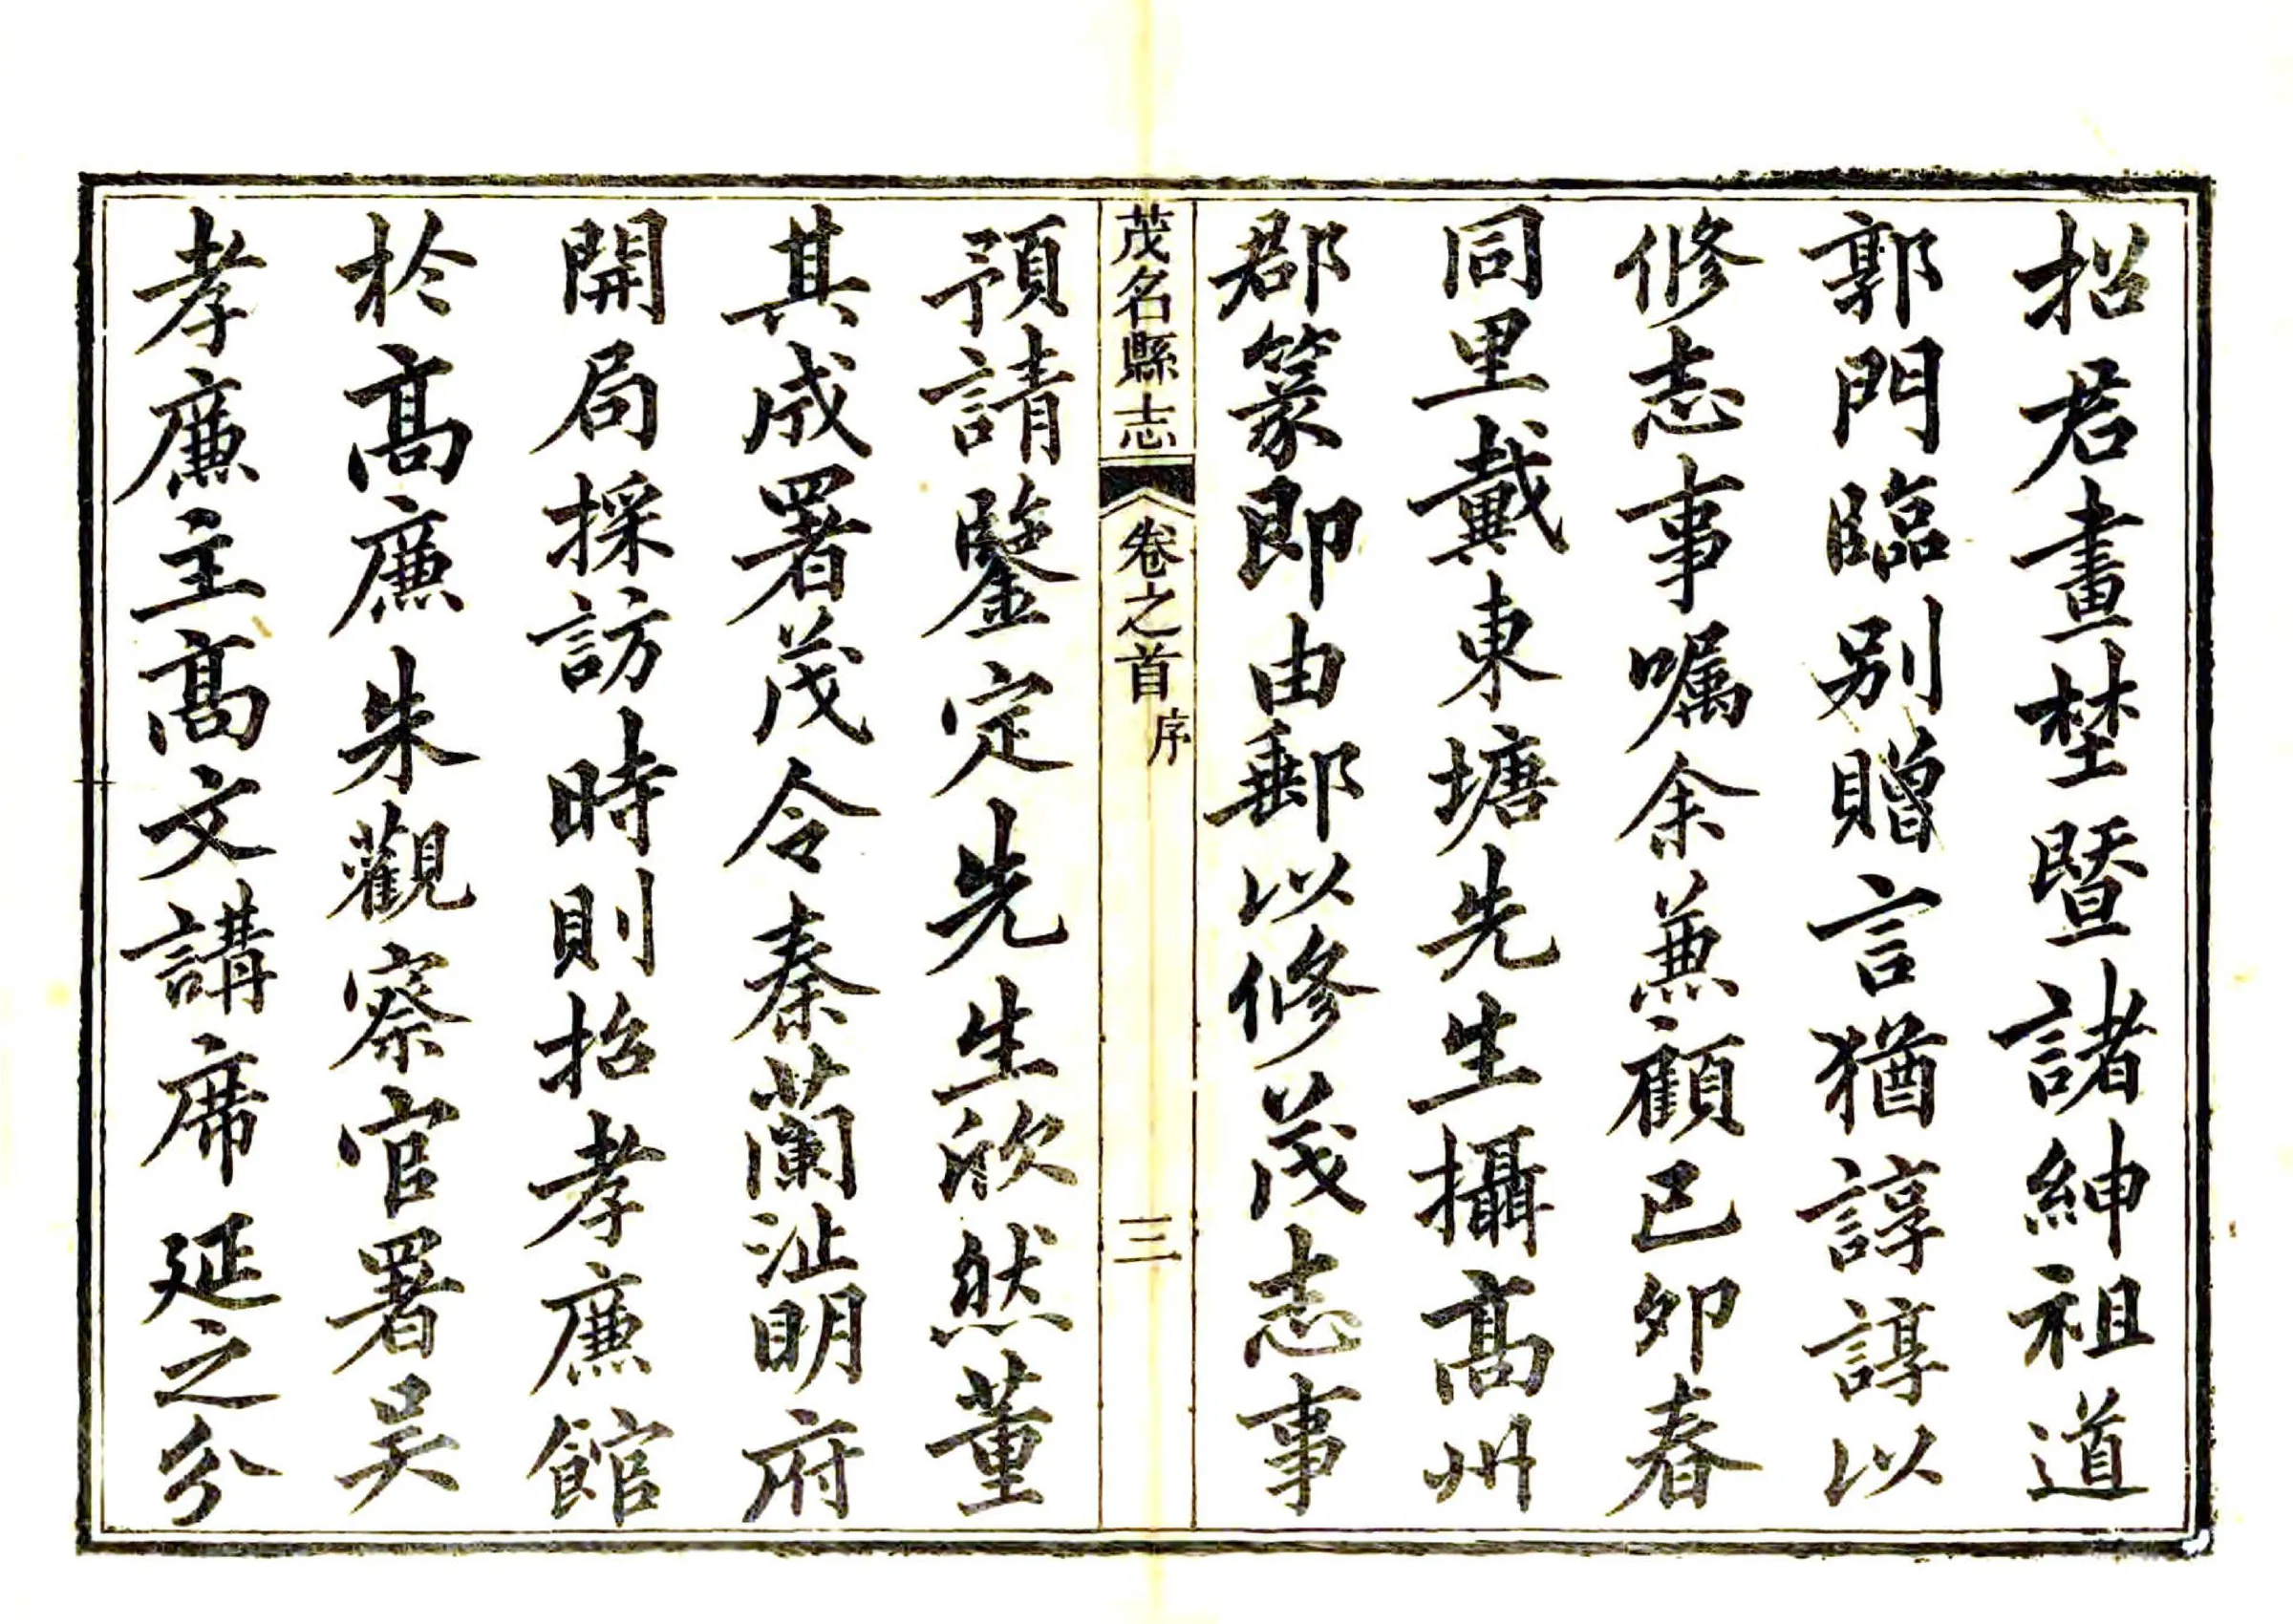 招君畫埜暨諸紳祖道
郭門臨别贈言猶諄諄以
修志事囑余兼顧己卯春
同里戴東塘先生攝高州
郡篆即由郵以修茂志事
茂名縣志 卷之首 序 三
預請鑒定先生欣然董
其成署茂令秦蘭沚明府
開局採訪時則招孝廉館
於高廉朱觀察官署吴
孝廉主高文講席延之分